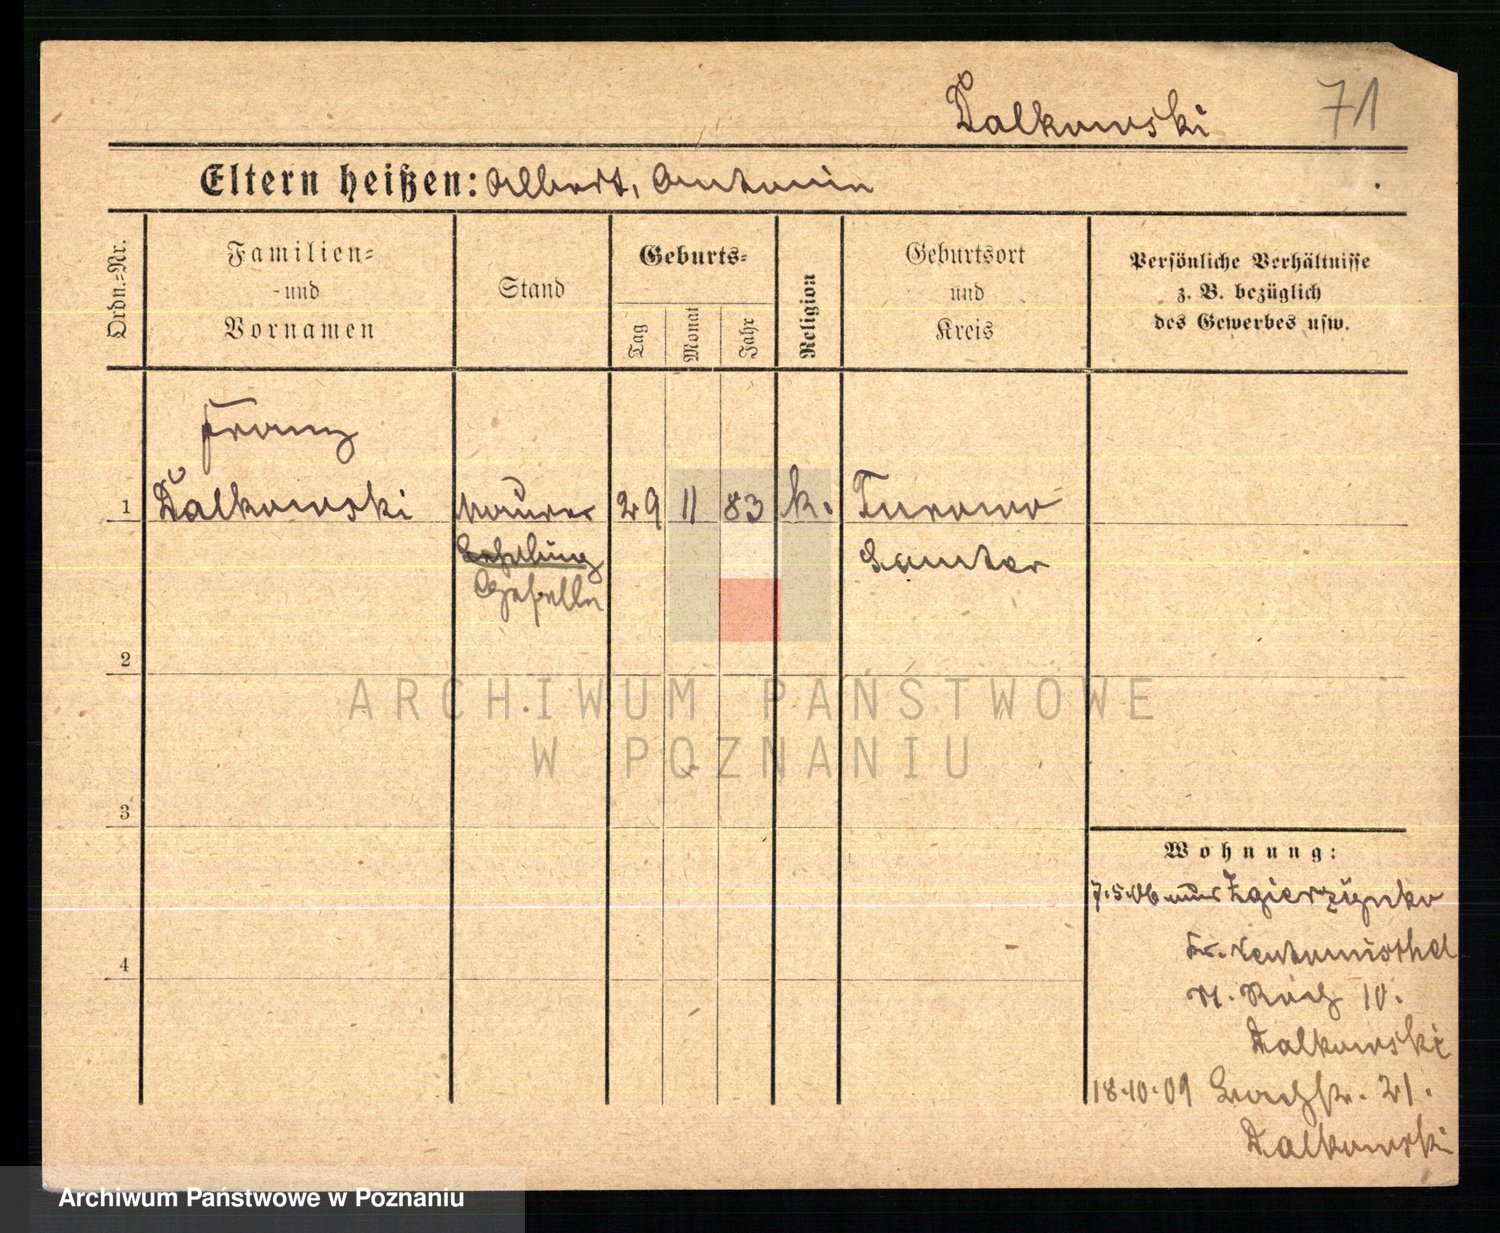 Dalkowski 71
Eltern heißen: Albert, Antonin
Ordn.-Nr.
Familien-
und
Vornamen
Stand
Geburts-
Tag
Monat
Jahr
Religion
Geburtsort
und
Kreis
Persönliche Verhältnisse
z. B. bezüglich
des Gewerbes usw.
Franz
1 Dalkowski Maurer 29 11 83 k. Turowo
Lehrling Samter
Geselle
2
ARCHIWUM PAŃSTWOWE
W POZNANIU
3
Wohnung:
7.5.06
10.
4
Dalkowski
18.10.09 21.
Dalkowski
Archiwum Państwowe w Poznaniu